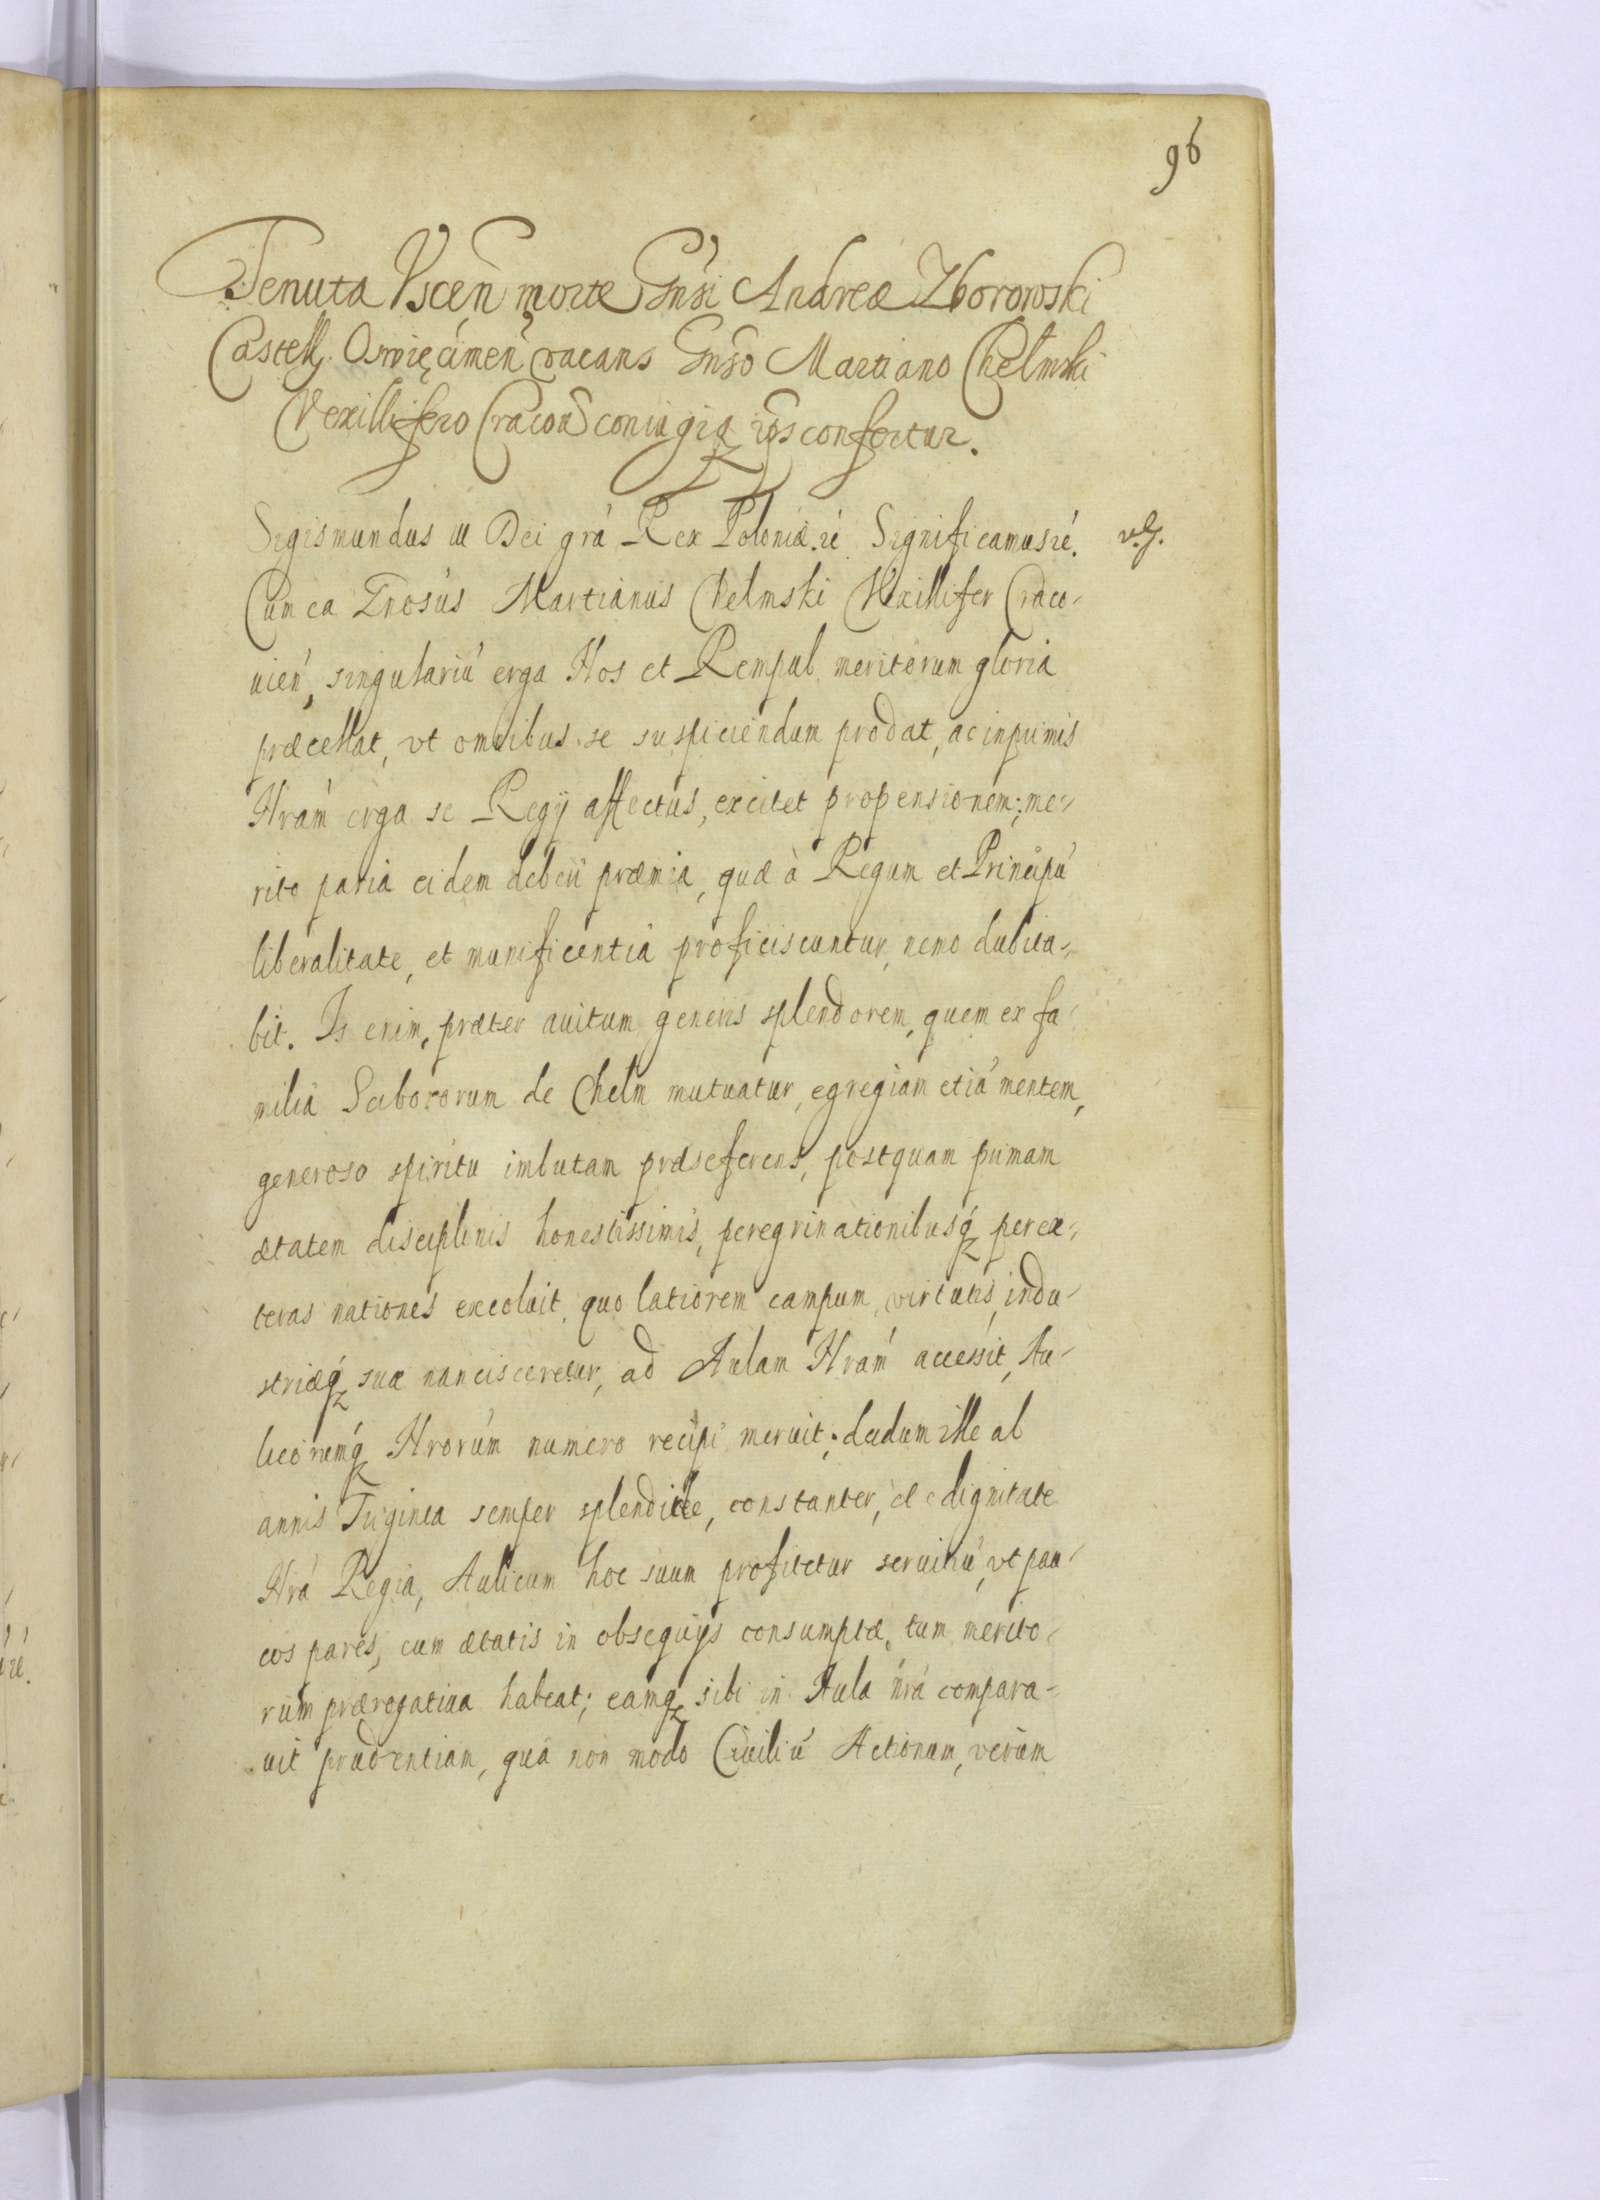 96
Tenuta Vscen̄ morte Gnsi Andreæ Zborowski
Castell. Oswięcimen̄ vacans Gnso Martiano Chełmski
Vexillifero Cracou coniugiq ips confertur.
Sigismundus III Dei grá Rex Poloniæ. ré Significamus ré.
Cum ea Gnosus Martianus Chelmski Vexillifer Craco-
uień, singulariú erga Nos et Rempub. meritorum gloria
præcellat, vt omnibus se suspiciendum prodat, ac inprimis
Nrám erga se Regÿ affectus, excitet propensionem; me-
rito paria eidem deberi præmia, quæ à Regum et Principú
liberalitate, et munificentiâ proficiscuntur, nemo dubita-
bit. Is enim, præter auitum generis splendorem, quem ex fa-
milia Sciborорum de Chelm mutuatur, egregiam etiá mentem,
generoso spiritu imbutam præseferens, postquam primam
ætatem disciplinis honestissimis, peregrinationibusq́ per ex-
teras nationes excoluit, quo latiorem campum, virtutis, indu-
striæq́ suæ nancisceretur, ad Aulam Nrám accessit, Au-
licorumq́ Nrorúm numero recipi meruit; dudum ille ab
annis Triginta semper splendide, constanter, et e dignitate
Nrá Regia, Aulicum hoc suum profitetur seruitiú, vt pau-
cos pares, cum ætatis in obsequÿs consumptæ, tum merito-
rum prærogatiua habeat; eamq́ sibi in Aula nrá compara-
uit prudentiam, quá non modo Ciuiliú Actionum, verùm